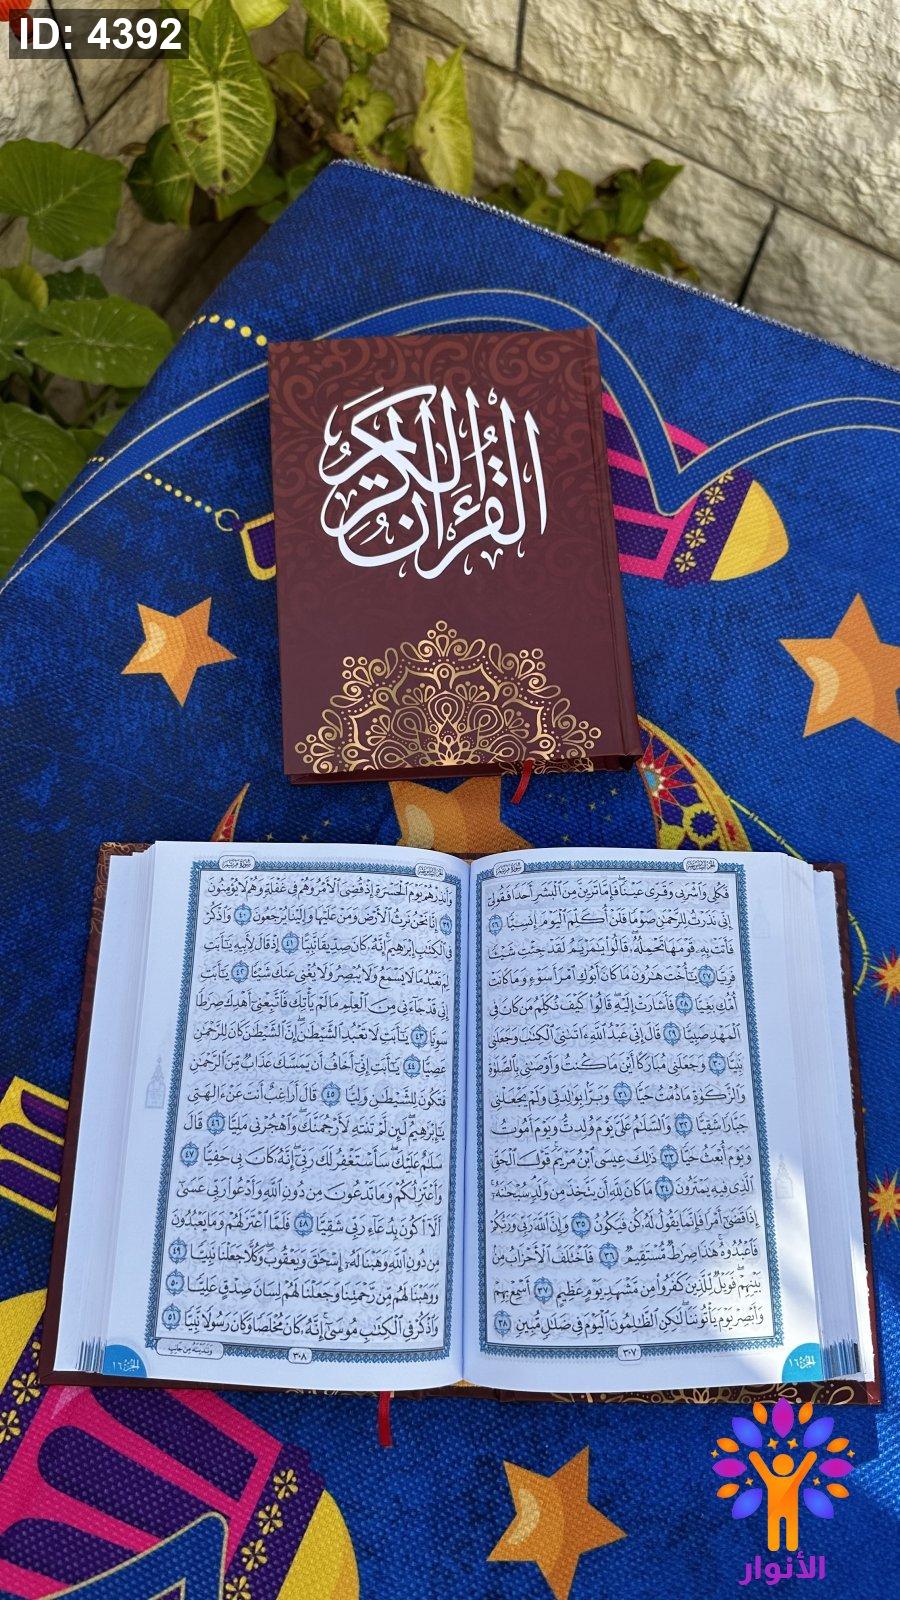 ID: 4392
القرءان الكريم
سورة مريم
الجزء السادس عشر
فكلى واشربى وقرى عينا فإما ترين من البشر أحدا فقولى
إنى نذرت للرحمن صوما فلن أكلم اليوم إنسيا ٢٦
فأتت به قومها تحمله قالوا يمريم لقد جئت شيـا
فريا ٢٧ يأخت هرون ما كان أبوك امرأ سوء وما كانت
أمك بغيا ٢٨ فأشارت إليه قالوا كيف نكلم من كان فى
المهد صبيا ٢٩ قال إنى عبد الله ءاتىنى الكتب وجعلنى
نبيا ٣٠ وجعلنى مباركا أين ما كنت وأوصنى بالصلوة
والزكوة ما دمت حيا ٣١ وبرا بولدتى ولم يجعلنى
جبارا شقيا ٣٢ والسلم على يوم ولدت ويوم أموت
ويوم أبعث حيا ٣٣ ذلك عيسى ابن مريم قول الحق
الذى فيه يمترون ٣٤ ما كان لله أن يتخذ من ولد سبحنه
إذا قضى أمرا فإنما يقول له كن فيكون ٣٥ وإن الله ربى وربكم
فاعبدوه هذا صرط مستقيم ٣٦ فاختلف الأحزاب من
بينهم فويل للذين كفروا من مشهد يوم عظيم ٣٧ أسمع بهم
وأبصر يوم يأتوننا لكن الظلمون اليوم فى ضلل مبين ٣٨
٣٠٧
الجزء ١٦
سورة مريم
الجزء السادس عشر
وأنذرهم يوم الحسرة إذ قضى الأمر وهم فى غفلة وهم لا يؤمنون
٣٩ إنا نحن نرث الأرض ومن عليها وإلينا يرجعون ٤٠ واذكر
فى الكتب إبرهيم إنه كان صديقا نبيا ٤١ إذ قال لأبيه يأبت
لم تعبد ما لا يسمع ولا يبصر ولا يغنى عنك شيـا ٤٢ يأبت
إنى قد جاءنى من العلم ما لم يأتك فاتبعنى أهدك صرطا
سويا ٤٣ يأبت لا تعبد الشيطن إن الشيطن كان للرحمن
عصيا ٤٤ يأبت إنى أخاف أن يمسك عذاب من الرحمن
فتكون للشيطن وليا ٤٥ قال أراغب أنت عن ءالهتى
يإبرهيم لئن لم تنته لأرجمنك واهجرنى مليا ٤٦ قال
سلم عليك سأستغفر لك ربى إنه كان بى حفيا ٤٧
وأعتزلكم وما تدعون من دون الله وأدعوا ربى عسى
ألا أكون بدعاء ربى شقيا ٤٨ فلما اعتزلهم وما يعبدون
من دون الله وهبنا له إسحق ويعقوب وكلا جعلنا نبيا ٤٩
ووهبنا لهم من رحمتنا وجعلنا لهم لسان صدق عليا ٥٠
واذكر فى الكتب موسى إنه كان مخلصا وكان رسولا نبيا ٥١
٣٠٨
الجزء ١٦
الأنوار